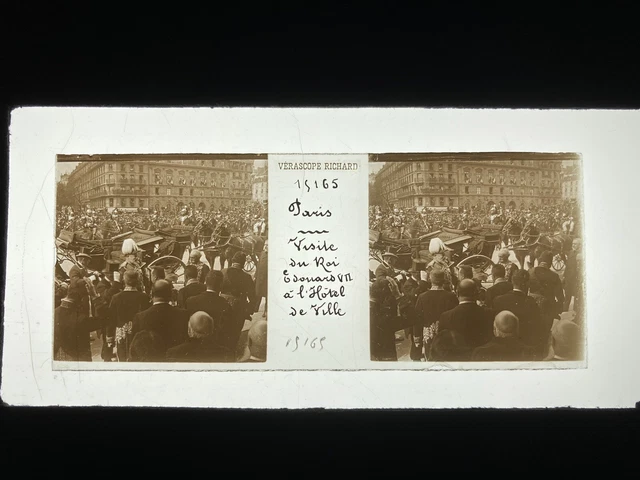 VÉRASCOPE RICHARD
15165
Paris
Visite
du Roi
Edouard VII
à l'Hôtel
de Ville
15165